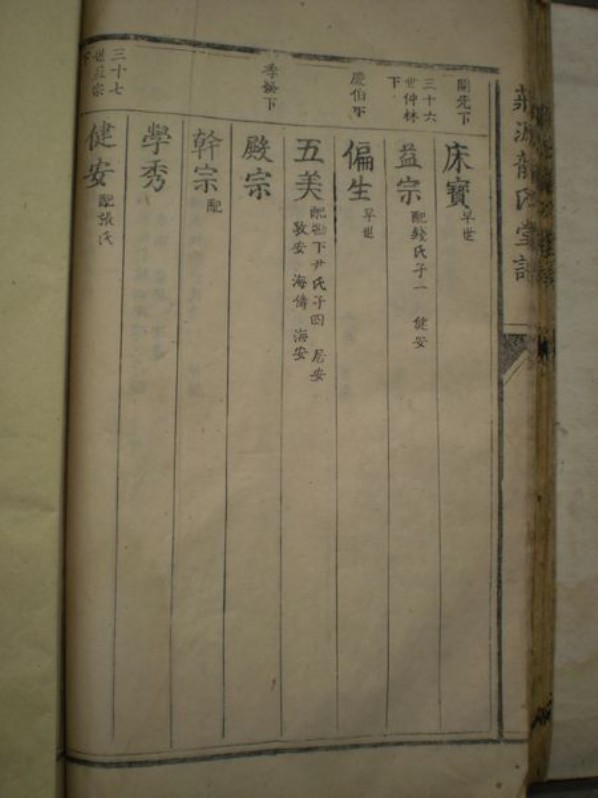 開先下
床寶 早世
三十六
世仲林
下
益宗 配錢氏子一 健安
慶伯下
偏生 早世
五美 配礼下尹氏子四 居安
敦安 海傳 海安
季 下
殿宗
幹宗 配
學秀
三十七
世益宗
下
健安 配張氏
龍氏